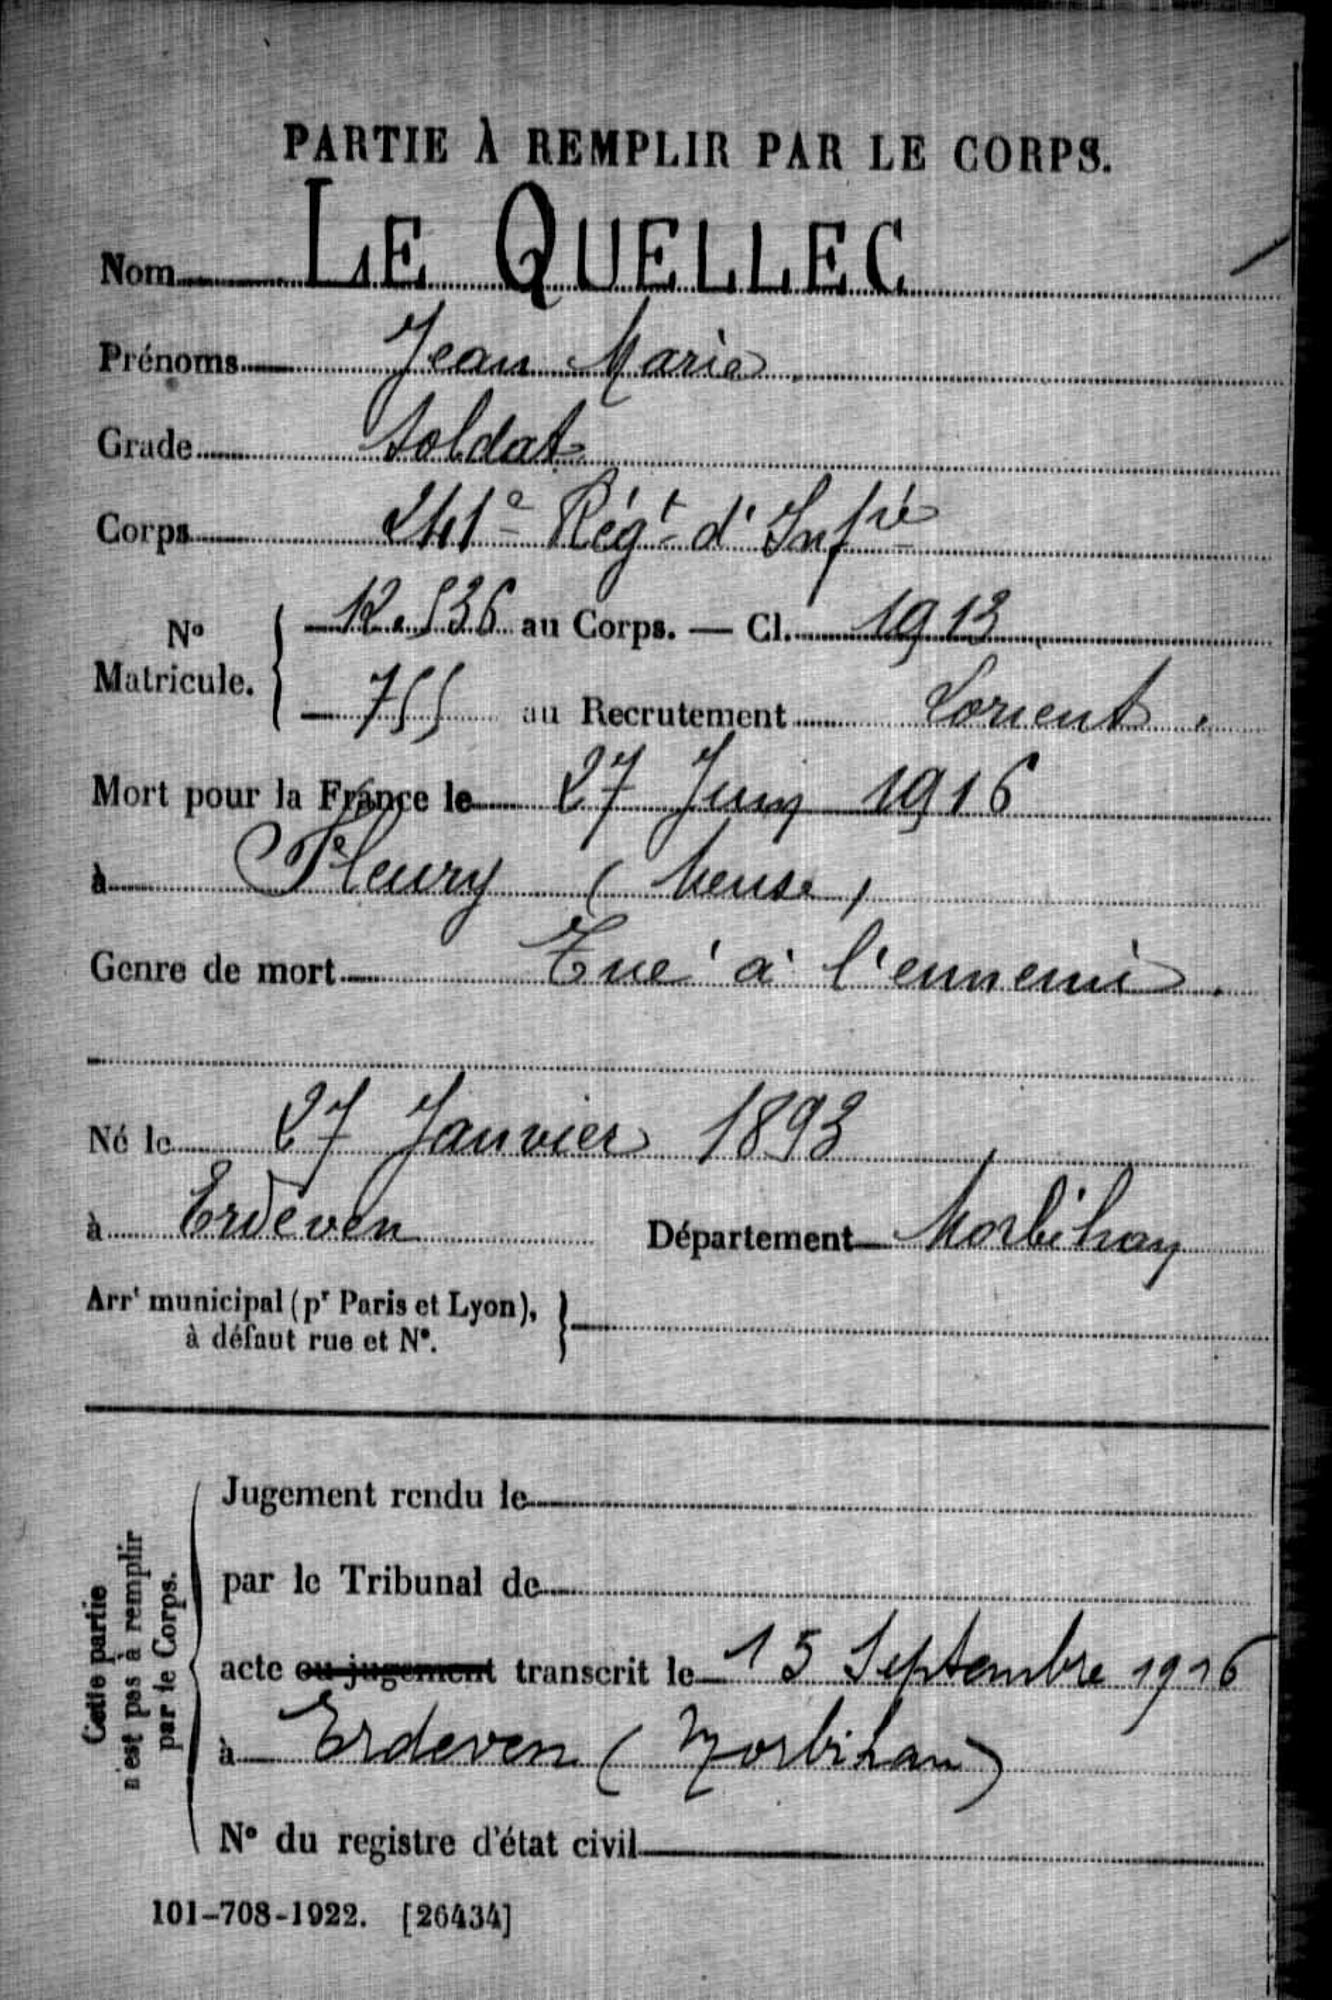 PARTIE À REMPLIR PAR LE CORPS.
Nom LE QUELLEC
Prénoms Jean Marie
Grade Soldat
Corps 241e Régt d'Infie
No Matricule. { 12.536 au Corps. — Cl. 1913
755 au Recrutement Lorient.
Mort pour la France le 27 Juin 1916
à Fleury (Meuse)
Genre de mort Tué à l'ennemi.
Né le 27 Janvier 1893
à Erdeven Département Morbihan
Arrt municipal (pr Paris et Lyon), }
à défaut rue et No.
Cette partie
n'est pas à remplir
par le Corps.
Jugement rendu le
par le Tribunal de
acte ou jugement transcrit le 15 Septembre 1916
à Erdeven (Morbihan)
No du registre d'état civil
101-708-1922. [26434]